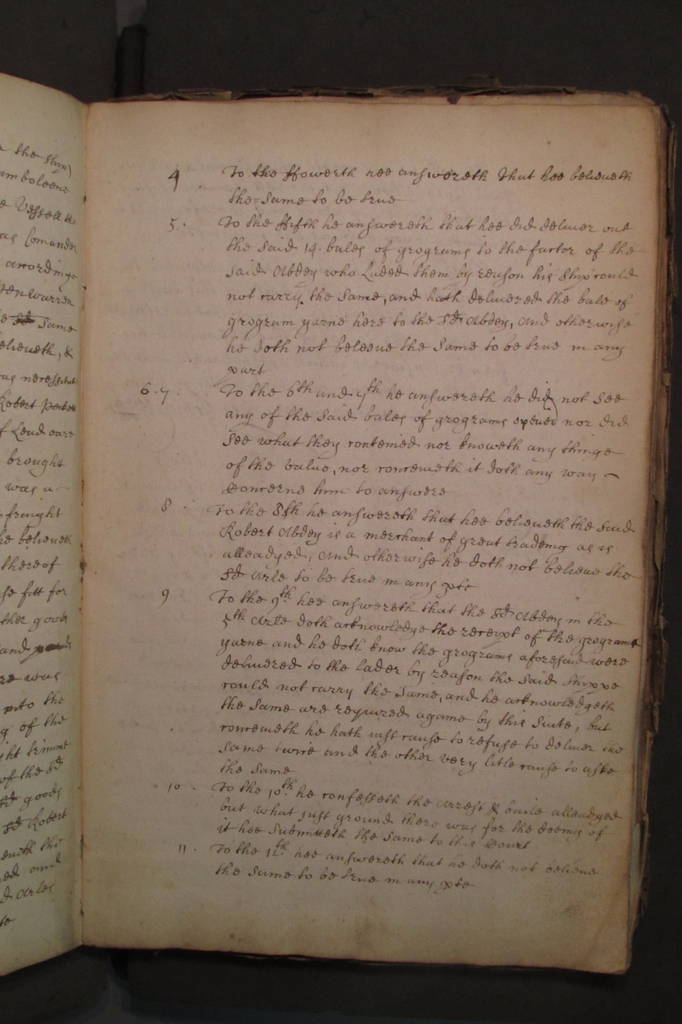 the ship
mboleene
e Vessell &
as Comander
according
Vanwarren
e sd same
beleiveth, &
was necessitat
Robert
f Lead oare
brought
was a
fraight
he beleiveth
thereof
se fitt for
ther goods
and
re was
into the
g of the
of the sd
sd goods
sd Robert
ed and
d Arles
4 To the ffowerth hee answereth that hee beleiveth
the same to be true
5. To the ffifth he answereth that hee did deliver out
the said 14 bales of grograms to the factor of the
said Abdey who Laded them by reason his ship could
not carry the same, and hath delivered the bale of
grogram yarne here to the sd Abdey, and otherwise
he doth not beleeve the same to be true in any
part
6. 7. To the 6th and 7th he answereth he did not see
any of the said bales of grograms opened nor did
see what they conteined nor knoweth any thinge
of the value, nor conceiveth it doth any way
Concerne him to answere
8 To the 8th he answereth that hee beleiveth the said
Robert Abdey is a merchant of great tradeing as is
alleadged, and otherwise he doth not beleive the
sd Arle to be true in any pte
9 To the 9th hee answereth that the sd Abdey in the
5th Arle doth acknowledge the receipt of the grogram
yarne and he doth know the grograms aforesaid were
delivered to the lader by reason the said shippe
could not carry the same, and he acknowledgeth
the same are required againe by this suite, but
conceiveth he hath just cause to refuse to deliver the
same twice and the other very litle cause to aske
the same
10. To the 10th he confesseth the arrest & baile alleadged
but what just ground there was for the doeing of
it hee submitteth the same to this Court
11. To the 11th hee answereth that he doth not beleive
the same to be true in any pte